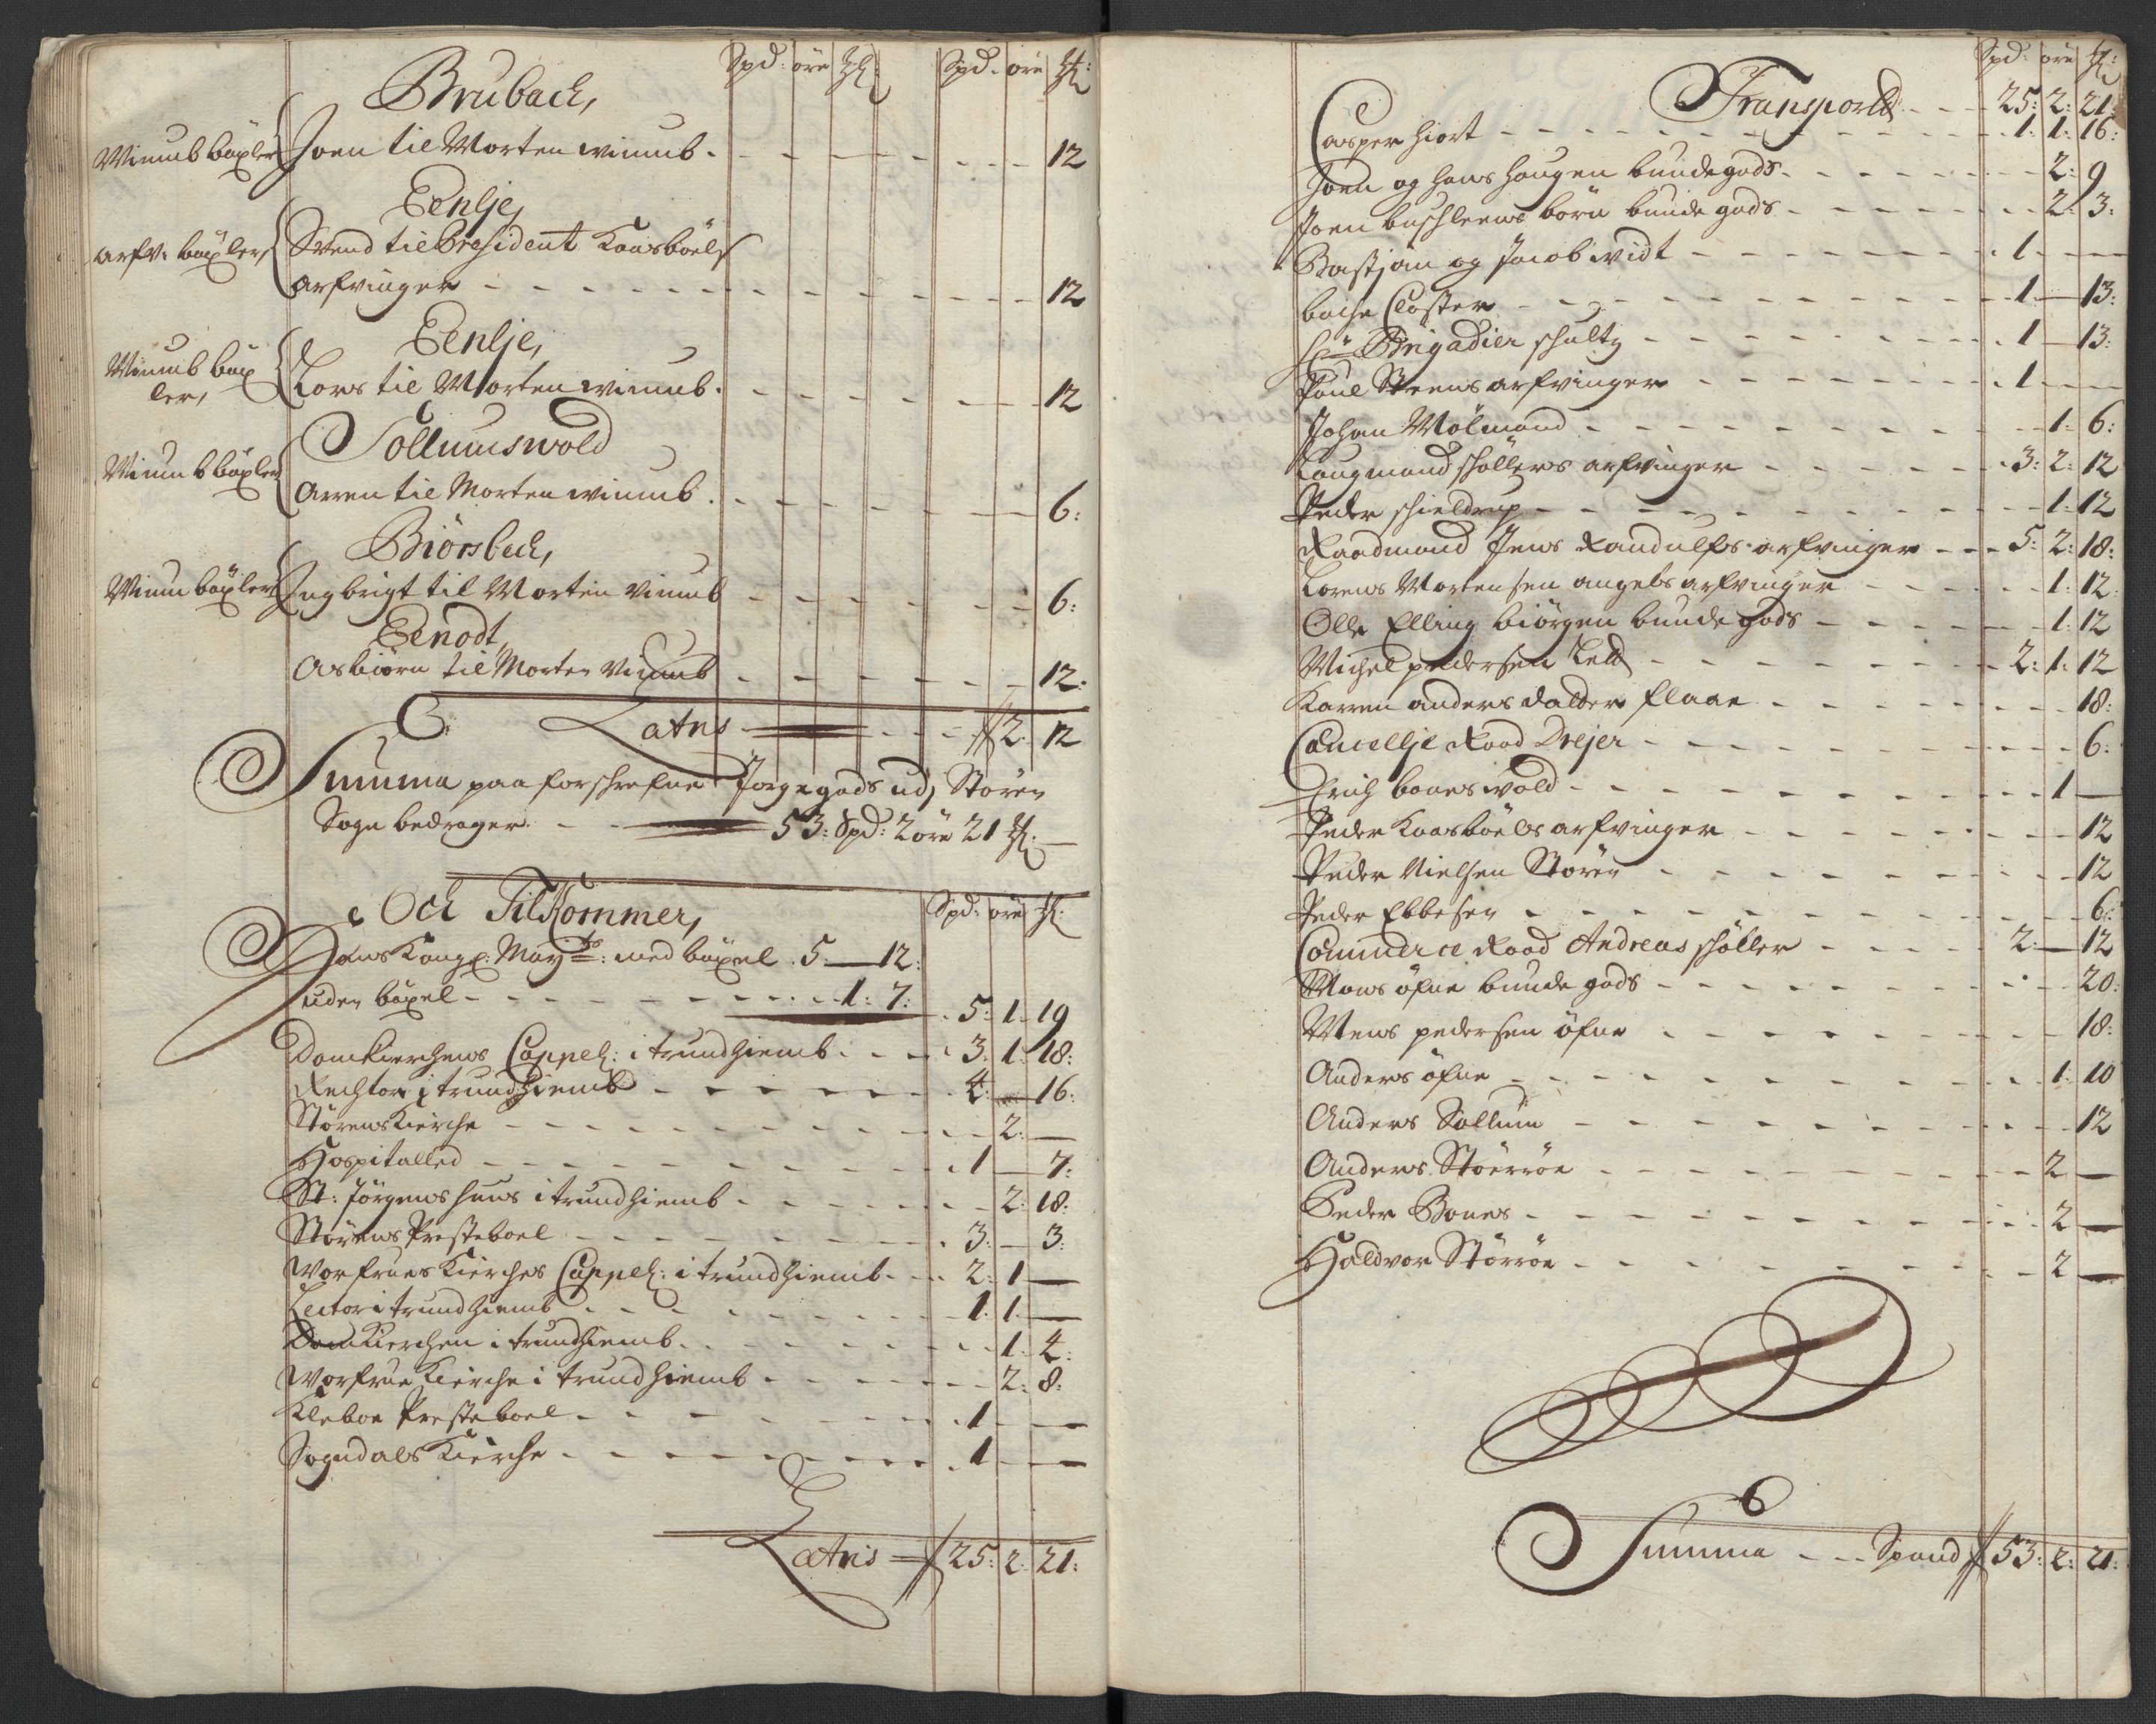 Spd: öre ℔: Spd: öre ℔:
Brubach,
Winnb böxler Joen til Morten winnb. 12
Eenlje,
arfv: böxler Svend til President Kaasböels
arfvinger 12
Eenlje,
Winnb böx
ler, Lars til Morten winnb. 12
Sollumswold
Winnb böxler Aren til Morten winnb. 6:
Biörsbech,
Winn böxler Ingbrigt til Morten Vinnb 6:
Eenodt,
Asbiörn til Morten Vinnb 12:
Latris 2: 12
Summa paa forschrefne Jorgegods udj Stören
Sogn bedrager 53: Spd: 2 öre 21 ℔:
Och TilKommer, Spd: öre ℔:
Hans Kongl: Mayts: med böxel 5: — 12:
uden böxel 1: 7: 5: 1 19
Domkierchens Cappel: i trundhiemb 3: 1: 18:
Rechtor i trundhiemb 4: — 16:
Störens Kierche 2: —
Hospitalled 1 — 7:
St: Jörgens huus i trundhiemb 2: 18:
Störens Presteboel 3: — 3:
Vor frues Kierches Cappel: i trundhiemb 2: 1 —
Lector i trundhiemb 1: 1: —
Domkierchen i trundhiemb 1: 4:
Vorfrue Kierche i trundhiemb 2: 8:
Kleboe Presteboel 1 — —
Sogndals Kierche 1 — —
Latris 25: 2: 21:
Spd: öre ℔:
Transport 25: 2: 21:
Casper Hiort 1: 1: 16:
Joen og Hans Haugen bundegods 2: 9
Joen buschleens börn bunde gods 2: 3:
Bastjan og Jacob widt 1 — —
bache Closter 1 — 13:
Hr Brigadier schultz 1 — 13:
Poul Steens arfvinger 1 — —
Johan Mölmand 1: 6:
Laugmand schöllers arfvinger 3: 2: 12
Peder schieldrup 1: 12
Raadmand Jens Randulfs arfvinger 5: 2: 18:
Lorens Mortensen angels arfvinger 1: 12:
Olle Elling biörgen bunde gods 1: 12
Michel pedersen Leld 2: 1: 12
Karren anders dalder flaae 18:
Cancellje Raad Drejer 6:
Erich bones wold 1 —
Peder Kaasböels arfvinger 12
Peder Nielsen Stören 12
Peder Ebbesen 6:
Commerce Raad Andreas schöller 2: — 12
Mons öfne bunde gods 20:
Mens pedersen öfne 18:
Anders öfne 1: 10
Anders Sollum 12
Anders Störröe 2 —
Peder Bones 2 —
Haldvor Störröe 2 —
Summa Spand 53: 2: 21: